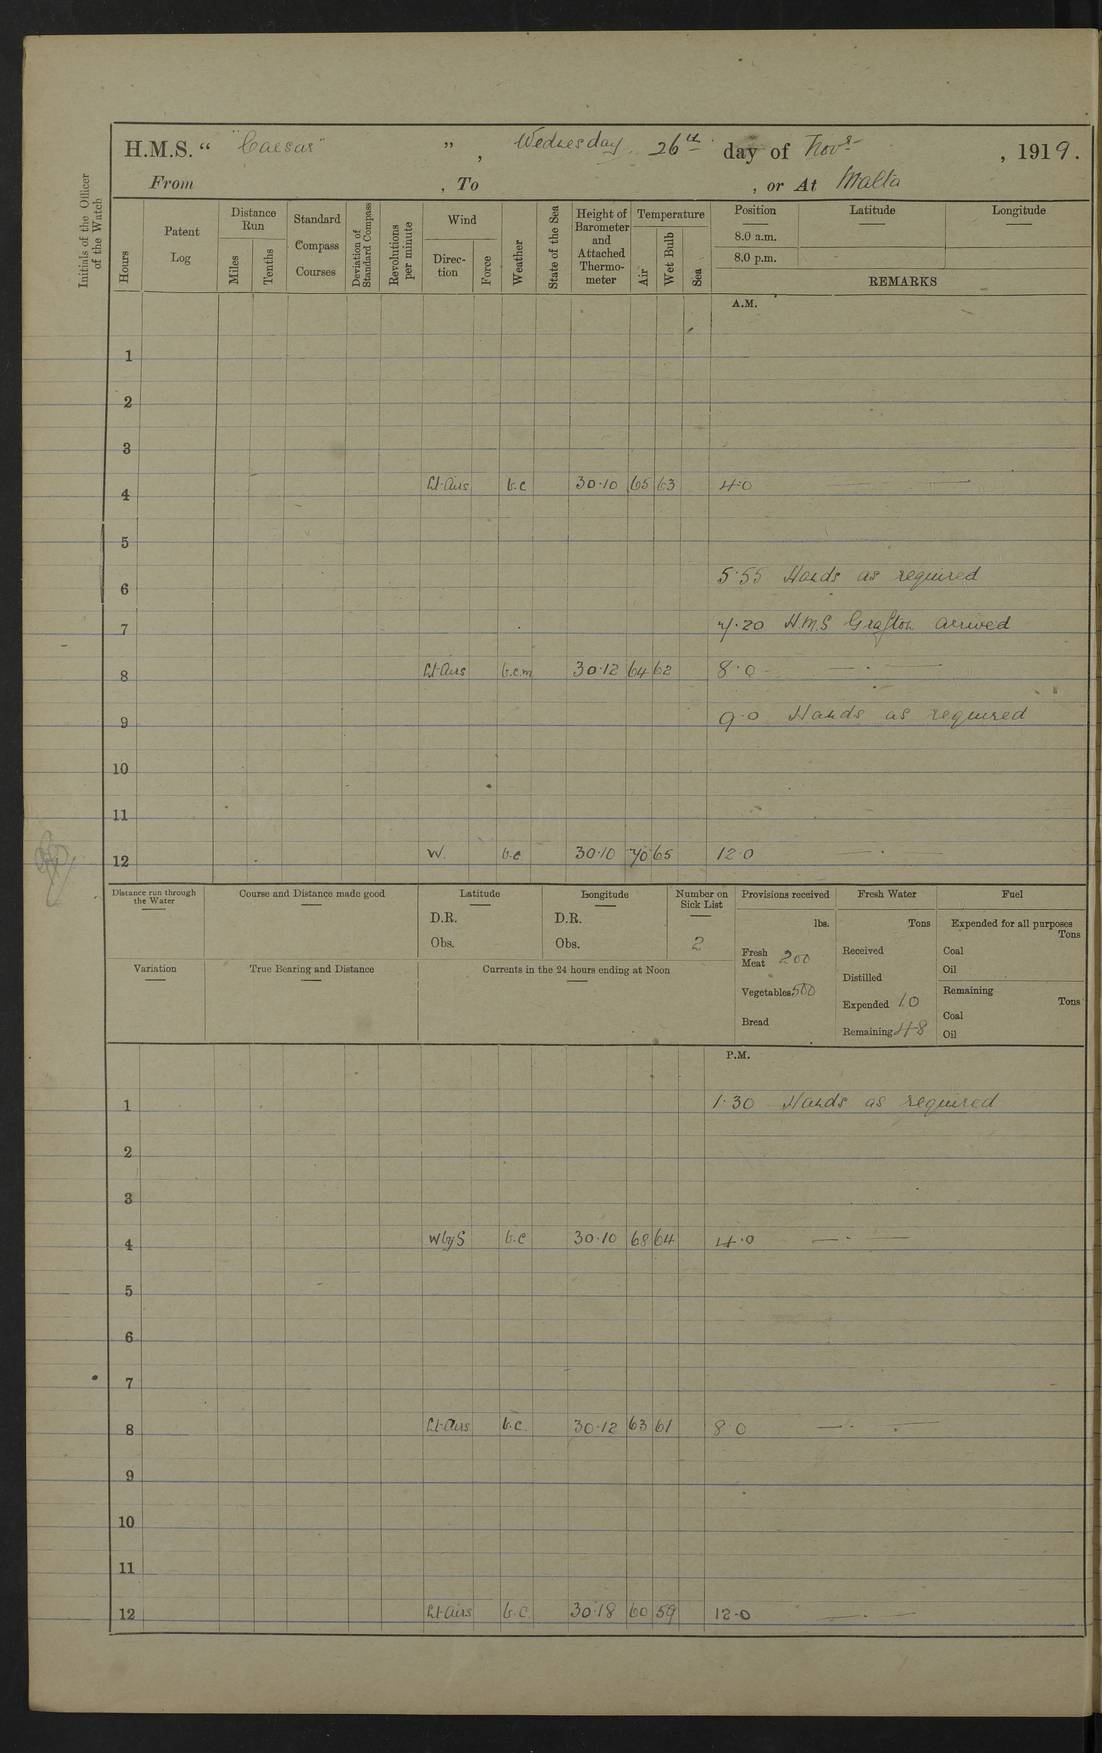 H.M.S. “ "Caesar" ” , Wednesday 26th day of Novr , 1919.
From , To , or At Malta
Initials of the Officer of the Watch
Hours
Patent Log
Distance Run
Miles
Tenths
Standard Compass Courses
Deviation of Standard Compass
Revolutions per minute
Wind
Direc-tion
Force
Weather
State of the Sea
Height of Barometer and Attached Thermo-meter
Temperature
Air
Wet Bulb
Sea
Position Latitude Longitude
8.0 a.m.
8.0 p.m.
REMARKS
A.M.
1
2
3
4 Lt Airs b.c 30.10 65 63 4.0
5
6 5.55 Hands as required
7 7.20 H.M.S Grafton arrived
8 Lt Airs b.c.m 30.12 64 62 8.0
9 9.0 Hands as required
10
11
12 W. b.c 30.10 70 65 12.0
Distance run through the Water
Course and Distance made good
Latitude
D.R.
Obs.
Longitude
D.R.
Obs.
Number on Sick List
2
Variation
True Bearing and Distance
Currents in the 24 hours ending at Noon
Provisions received
lbs.
Fresh Meat 200
Vegetables 500
Bread
Fresh Water
Tons
Received
Distilled
Expended 10
Remaining 48
Fuel
Expended for all purposes
Tons
Coal
Oil
Remaining
Tons
Coal
Oil
P.M.
1 1.30 Hands as required
2
3
4 W by S b.c 30.10 68 64 4.0
5
6
7
8 Lt Airs b.c. 30.12 63 61 8.0
9
10
11
12 Lt Airs b.c. 30.18 60 59 12.0